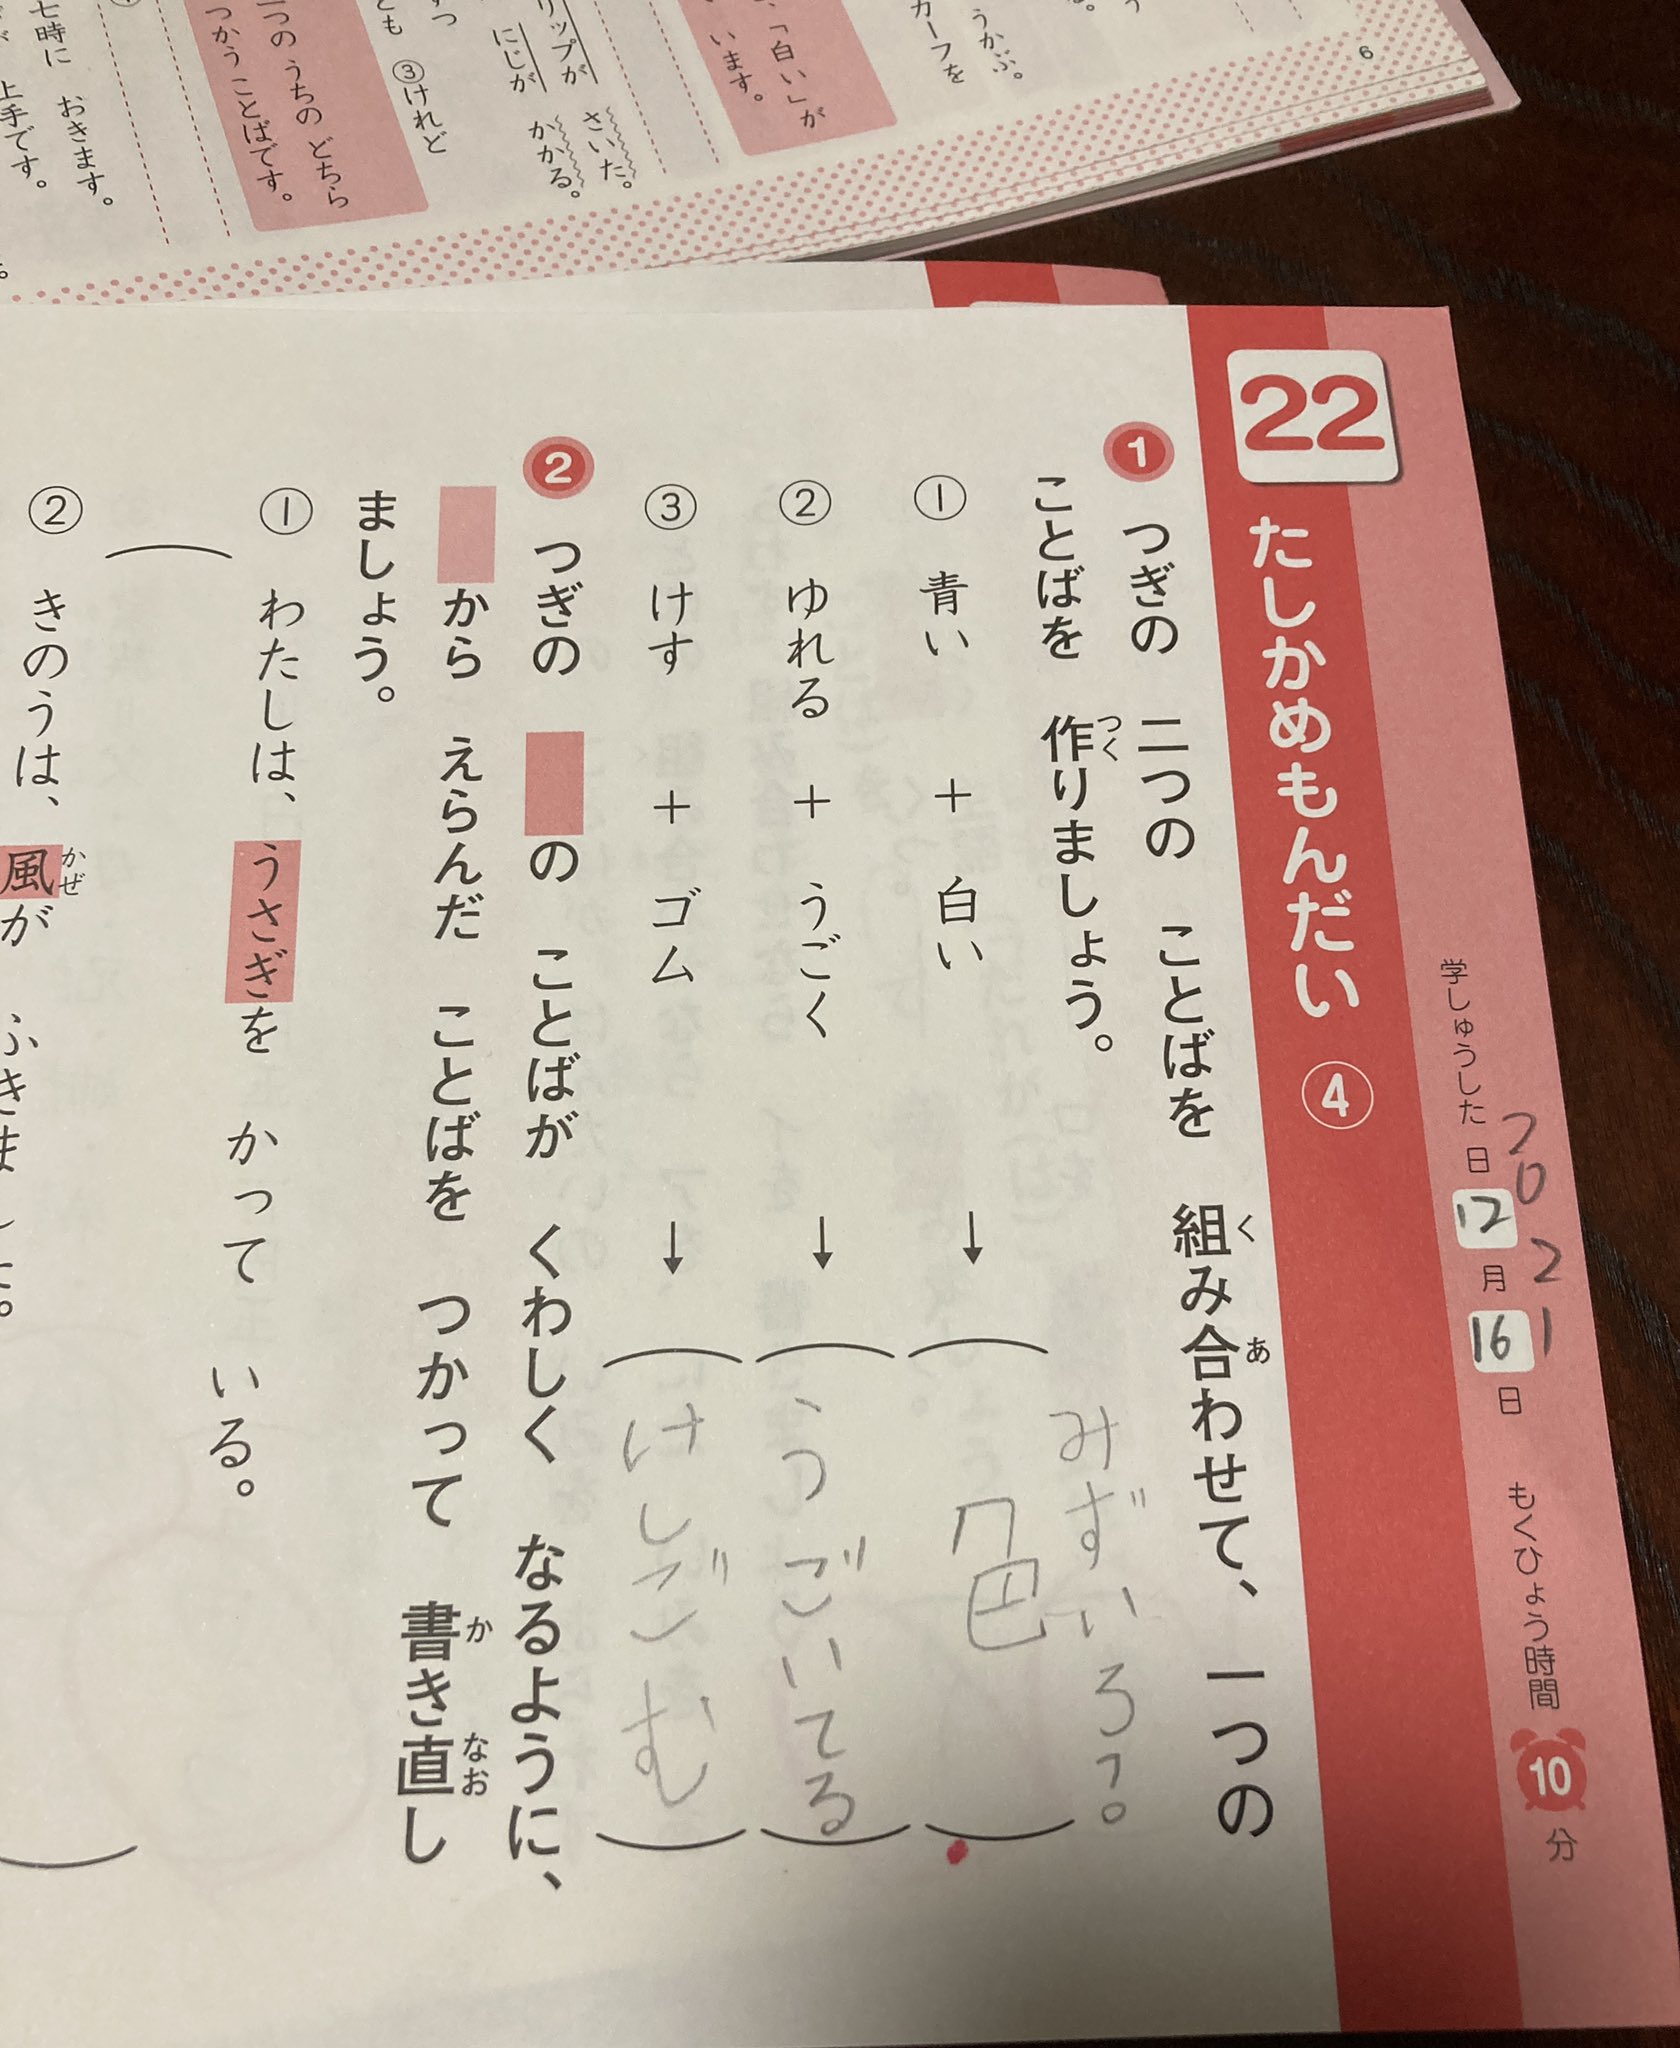 6
うかぶ。
カーフを
「白い」が
います。
リップが さいた。
にじが かかる。
③けれど
とも
二つの うちの どちら
つかう ことばです。
七時に おきます。
上手です。
22 たしかめもんだい ④
学しゅうした日 12月16日 もくひょう時間 10分
2021
1 つぎの 二つの ことばを 組み合わせて、一つの
く あ
ことばを 作りましょう。
つく
① 青い + 白い → ( 色 )
みずいろ?
② ゆれる + うごく → (うごいてる)
③ けす + ゴム → (けしごむ)
2 つぎの の ことばが くわしく なるように、
から えらんだ ことばを つかって 書き直し
か なお
ましょう。
① わたしは、うさぎを かって いる。
( )
② きのうは、風が ふきました。
かぜ